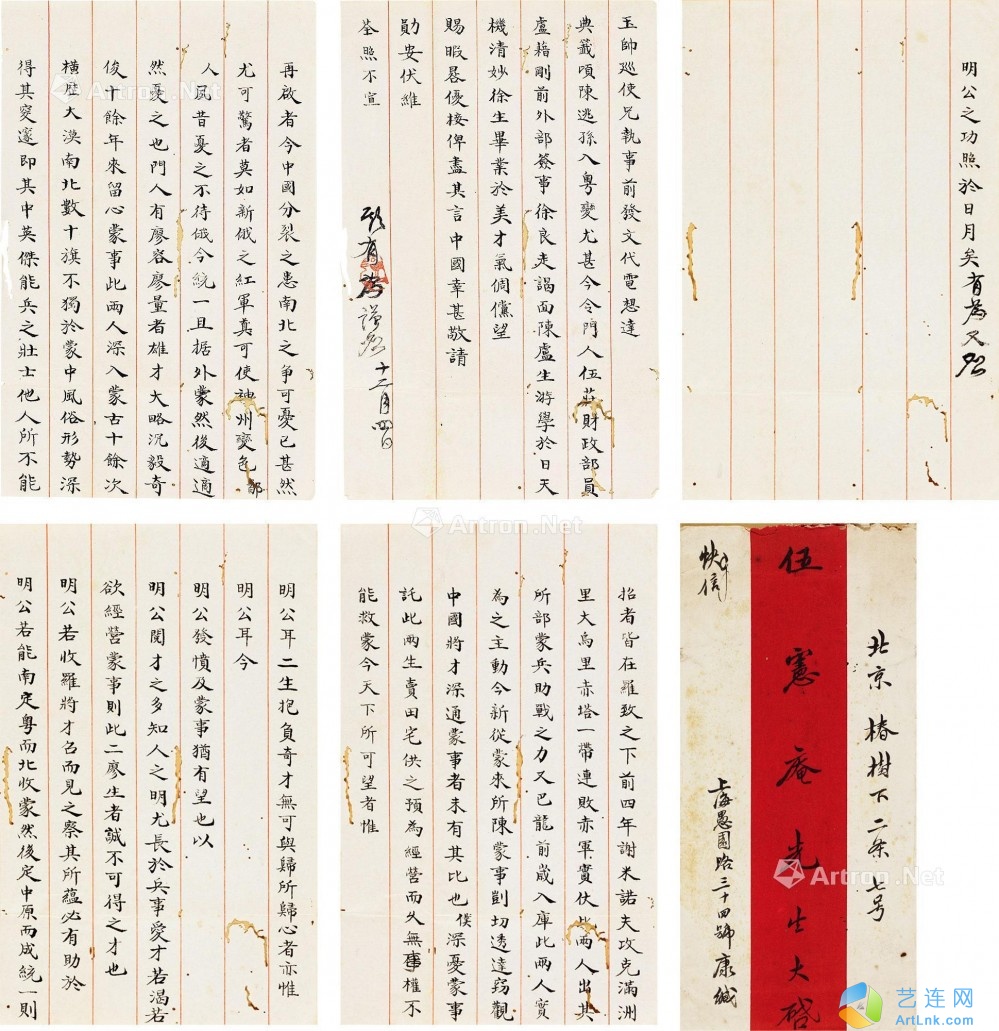 玉帥巡使兄執事前發文代電想達
典籤頃陳逃孫入粵變尤甚今令門人伍莊財政部員
盧藉剛前外部簽事徐良走謁面陳盧生游學於日天
機清妙徐生畢業於美才氣倜儻望
賜暇晷優接俾盡其言中國幸甚敬請
勛安伏維
荃照不宣
有為謹啟 十二月四日
再啟者今中國分裂之患南北之爭可憂已甚然
尤可驚者莫如新俄之紅軍真可使神州變色鄙
人夙昔憂之不待俄今統一且据外蒙然後適適
然憂之也門人有廖容廖量者雄才大略沉毅奇
俊十餘年來留心蒙事此兩人深入蒙古十餘次
橫歷大漠南北數十旗不獨於蒙中風俗形勢深
得其窔邃即其中英傑能兵之壯士他人所不能
招者皆在羅致之下前四年謝米諾夫攻克滿洲
里大烏里赤塔一帶連敗赤軍實仗此兩人出其
所部蒙兵助戰之力又巴龍前歲入庫此兩人實
為之主動今新從蒙來所陳蒙事剴切透達竊觀
中國將才深通蒙事者未有其比也僕深憂蒙事
託此兩生賣田宅供之預為經營而久無事權不
能救蒙今天下所可望者惟
明公耳二生抱負奇才無可與歸所歸心者亦惟
明公耳今
明公發憤及蒙事猶有望也以
明公閱才之多知人之明尤長於兵事愛才若渴若
欲經營蒙事則此二廖生者誠不可得之才也
明公若收羅將才召而見之察其所蘊必有助於
明公若能南定粵而北收蒙然後定中原而成統一則
明公之功照於日月矣有為又啟
北京椿樹下二条七号
伍憲庵先生大啓
快信
上海愚園路三十四號康緘
Artron.Net
艺连网
ArtLnk.com